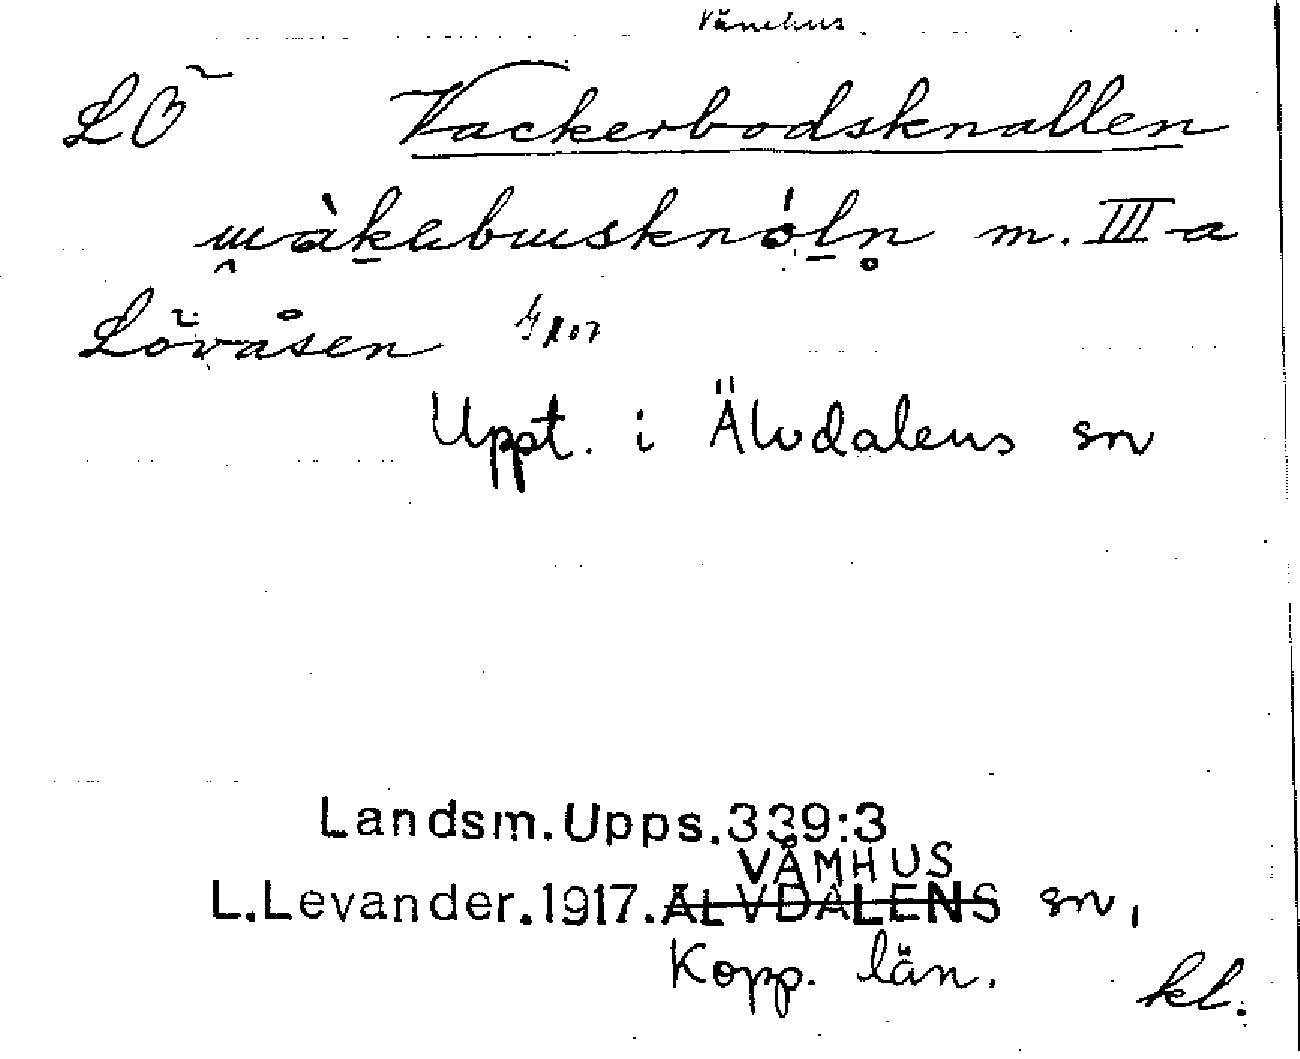 Våmhus
LÖ Vackerbodsknallen
wàkɐbɯsknóln̥ m. III a
Lövåsen
Uppt. i Älvdalens sn
Landsm.Upps.339:3
VÅMHUS
L.Levander.1917.ÄLVDALENS sn,
Kopp. län.
kl.